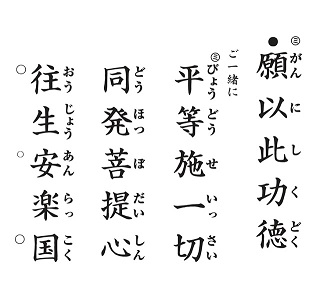 ㊂
願以此功徳
がんにしくどく
ご一緒に
㊂
平等施一切
びょうどうせいっさい
同発菩提心
どうほつぼだいしん
往生安楽国
おうじょうあんらっこく